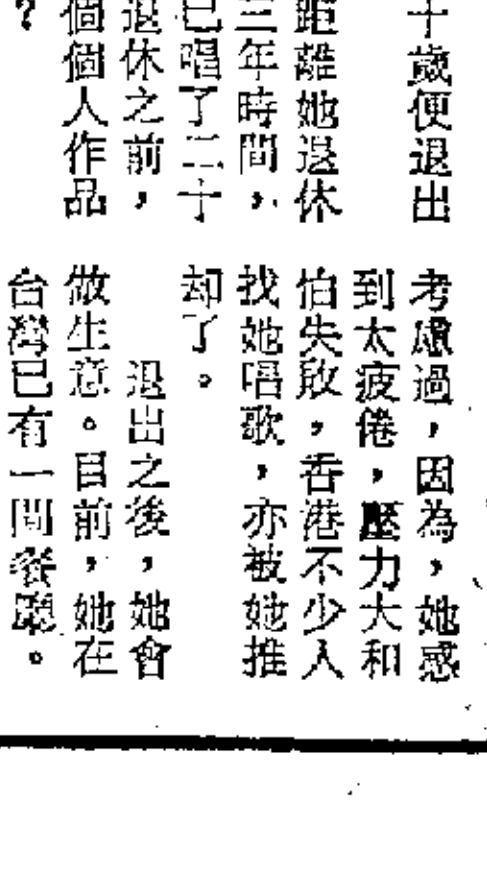 十歲便退出
距離她退休
三年時間，
已唱了二十
退休之前，
個個人作品
？
考慮過，因為，她感
到太疲倦，壓力大和
怕失敗，香港不少人
找她唱歌，亦被她推
却了。
退出之後，她會
做生意。目前，她在
台灣已有一間餐廳。